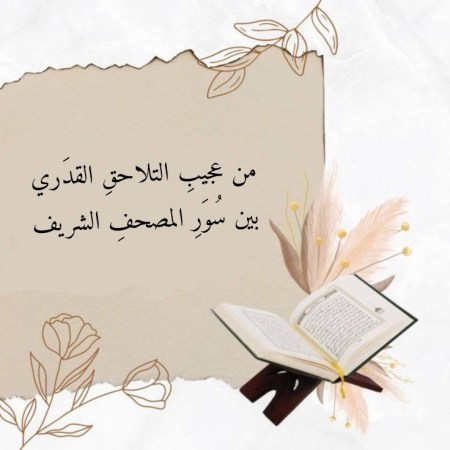 من عجيبِ التلاحقِ القدَري
بين سُوَرِ المصحفِ الشريف